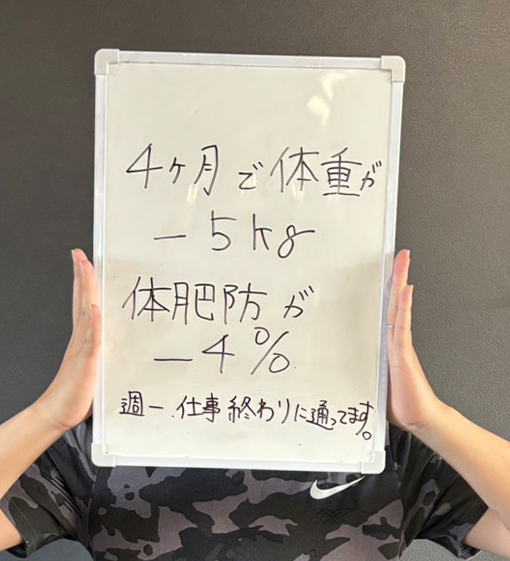 4ヶ月で体重が
-5kg
体肥防が
-4%
週一.仕事終わりに通ってます。